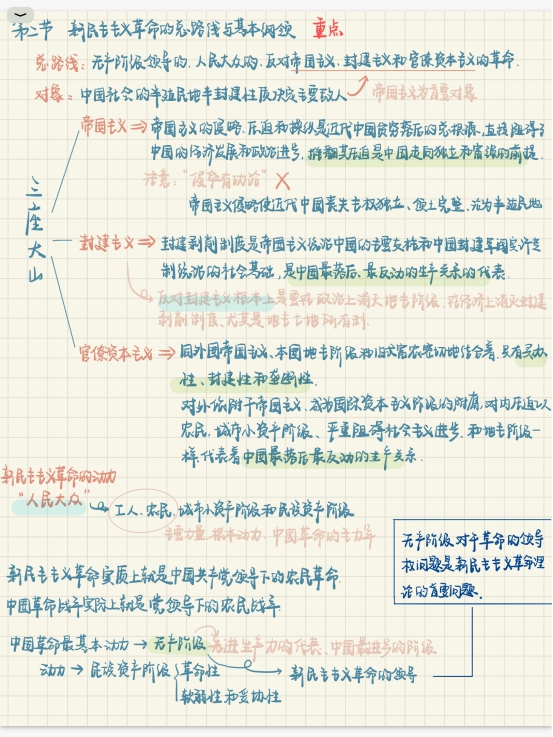 第二节 新民主主义革命的总路线与基本纲领 重点
总路线：无产阶级领导的，人民大众的，反对帝国主义、封建主义和官僚资本主义的革命．
对象：中国社会的半殖民地半封建性质决定主要敌人 帝国主义为首要对象
帝国主义 ⇒ 帝国主义的侵略、压迫和掠夺是近代中国贫穷落后的总根源，直接阻碍了
中国的经济发展和政治进步，推翻其压迫是中国走向独立和富强的前提．
注意：“侵华有功论” ×
帝国主义侵略使近代中国丧失主权独立、领土完整，沦为半殖民地
三座大山
封建主义 ⇒ 封建剥削制度是帝国主义统治中国的主要支柱和中国封建军阀实行专
制统治的社会基础，是中国最落后、最反动的生产关系的代表．
反对封建主义根本上是要在政治上消灭地主阶级，在经济上消灭封建
剥削制度、尤其是地主土地所有制．
官僚资本主义 ⇒ 同外国帝国主义、本国地主阶级和旧式富农密切地结合着，具有买办
性、封建性和垄断性．
对外依附于帝国主义，成为国际资本主义阶级的附庸，对内压迫
农民，城市小资产阶级、严重阻碍社会主义进步，和地主阶级一
样，代表着中国最落后最反动的生产关系．
新民主主义革命的动力
“人民大众” 工人、农民、城市小资产阶级和民族资产阶级
主要力量，根本动力，中国革命的主力军
无产阶级对于革命的领导
权问题是新民主主义革命理
论的首要问题．
新民主主义革命实质上就是中国共产党领导下的农民革命．
中国革命战争实际上就是党领导下的农民战争
中国革命最基本动力 → 无产阶级 先进生产力的代表、中国最进步的阶级
动力 → 民族资产阶级 { 革命性 → 新民主主义革命的领导
软弱性和妥协性